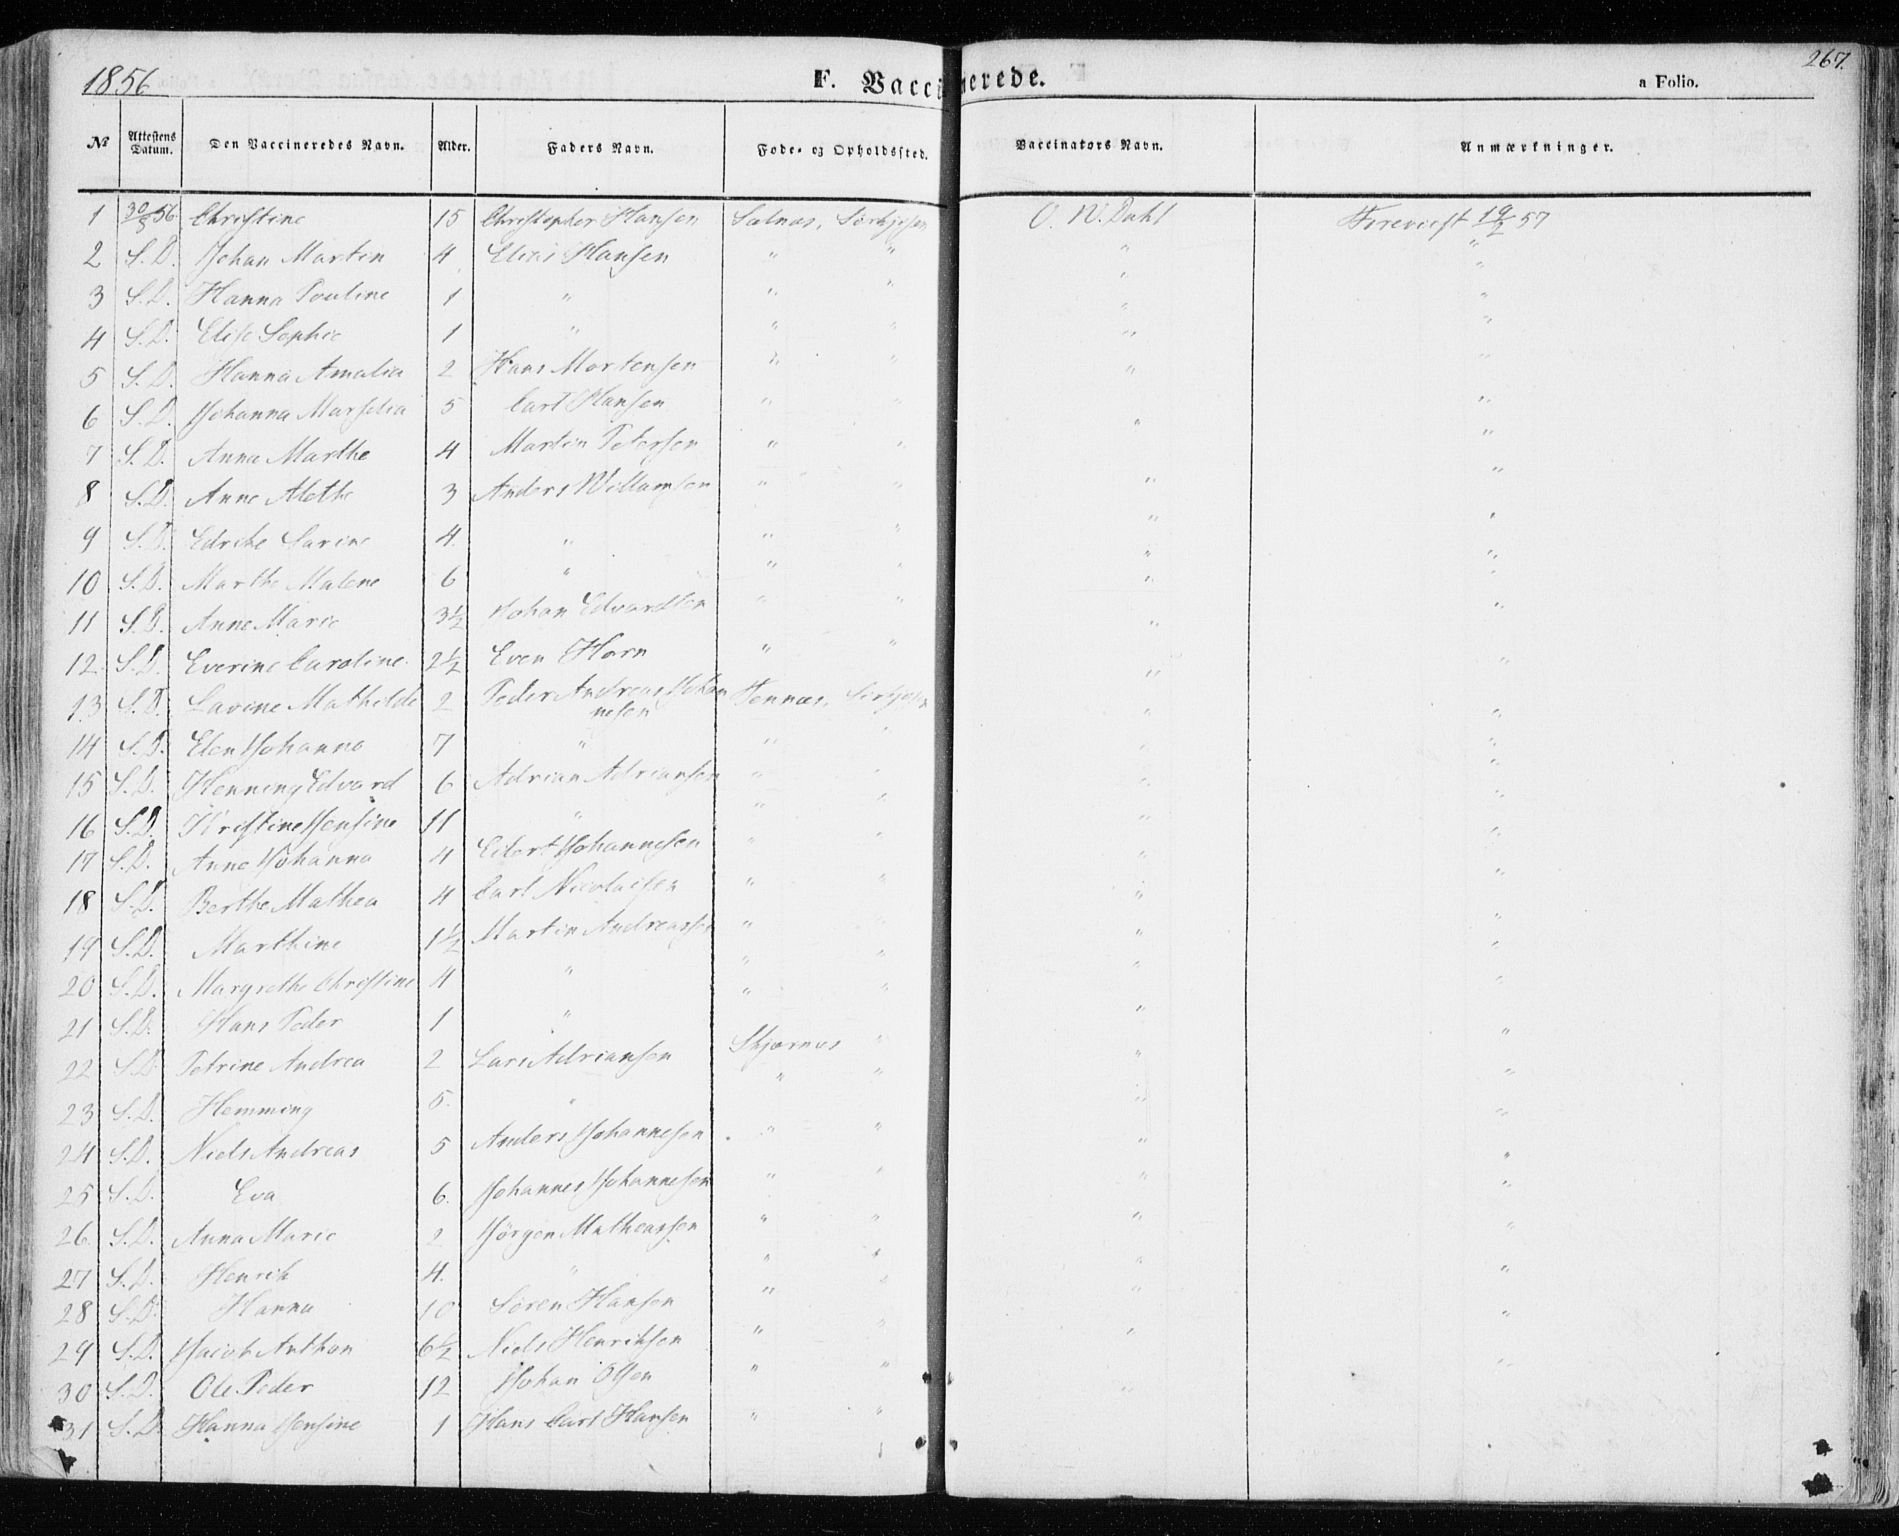 1856 F. Vaccinerede. 267.
a Folio.
№ Attestens Datum. Den Vaccineredes Navn. Alder. Faders Navn. Føde- og Opholdssted. Vaccinators Navn. Anmærkninger.
1 30/8 56 Christine 15 Christopher Hansen Salnæs, Sørkjosen O. W. Dahl Foreviist 19/2 57
2 S. D. Johan Martin 4 Elias Hansen " " " "
3 S. D. Hanna Pouline 1 " " " " "
4 S. D. Elise Sophie 1 " " " " "
5 S. D. Hanna Amalia 2 Hans Mortensen " " " "
6 S. D. Johanna Marselia 5 Carl Hansen " " " "
7 S. D. Anna Marthe 4 Martin Petersen " " " "
8 S. D. Anne Alethe 3 Anders Willumsen " " " "
9 S. D. Edrike Sarine 4. " " " " "
10 S. D. Marthe Malene 6 " " " " "
11 S. D. Anne Marie 3½ Johan Edvardsen " " " "
12. S. D. Everine Caroline. 2½ Even Horn " " " "
13 S. D. Lavine Mathilde 2 Peder Andreas Johannesen Tennæs, Sørkjosen " "
14 S. D. Elen Johanna 7 " " " " "
15 S. D. Henning Edvard 6 Adrian Adriansen " " " "
16 S. D. Kristine Jensine 11 " " " " "
17 S. D. Anne Johanna 4 Eilert Johannesen " " " "
18 S. D. Berthe Mathea 4 Carl Nicolaisen " " " "
19 S. D. Marthine 1½ Martin Andreassen " " " "
20 S. D. Margrethe Christine 4 " " " " "
21 S. D. Hans Peder 1 " " " " "
22 S. D. Petrine Andrea 2 Lars Adriansen Skjærnes " " "
23 S. D. Hemming 5. " " " " "
24 S. D. Niels Andreas 5 Anders Johannesen " " " "
25 S. D. Eva 6. Johannes Johannesen " " " "
26. S. D. Anna Marie 2 Jørgen Matheassen " " " "
27 S. D. Henrik 4. " " " " "
28 S. D. Hanna 10 Søren Hansen " " " "
29 S. D. Jacob Anthon 6½ Niels Henriksen " " " "
30 S. D. Ole Peder 12 Johan Olsen " " " "
31 S. D. Hanna Jensine 1 Hans Carl Hansen " "